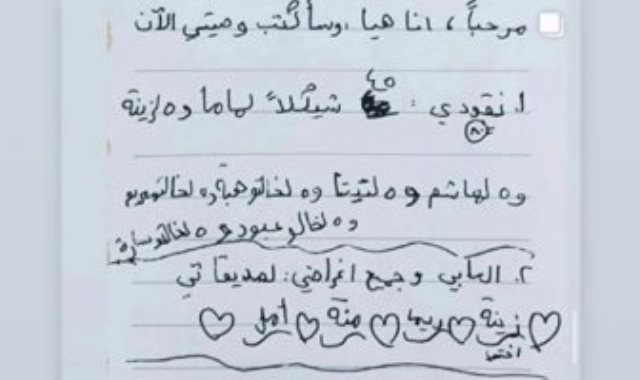 مرحباً ، انا هيا .وسأكتب وصيتي الآن
٤٥
١. نقودي : شيكلاً لماما و ٥ لزينة
و ٥ لهاشم و ٥ لتيتا و ٥ لخالتو هبة و ٥ لخالتو مريم
و ٥ لخالو عبود و ٥ لخالتو سارة
٢. العابي وجميع اغراضي: لصديقاتي
زينة ريما منة أمل
اختها